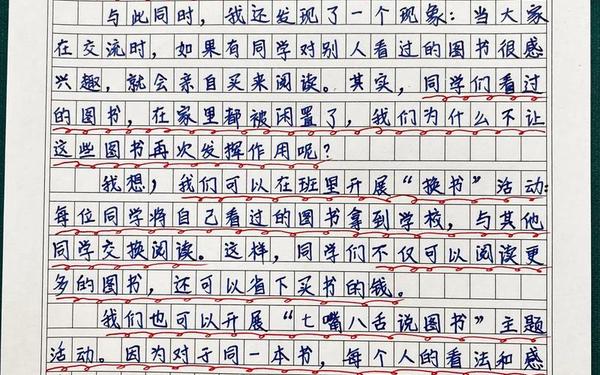 与此同时，我还发现了一个现象：当大家
在交流时，如果有同学对别人看过的图书很感
兴趣，就会亲自买来阅读。其实，同学们看过
的图书，在家里都被闲置了，我们为什么不让
这些图书再次发挥作用呢？
我想，我们可以在班里开展“换书”活动：
每位同学将自己看过的图书拿到学校，与其他
同学交换阅读。这样，同学们不仅可以阅读更
多的图书，还可以省下买书的钱。
我们也可以开展“七嘴八舌说图书”主题
活动。因为对于同一本书，每个人的看法和感